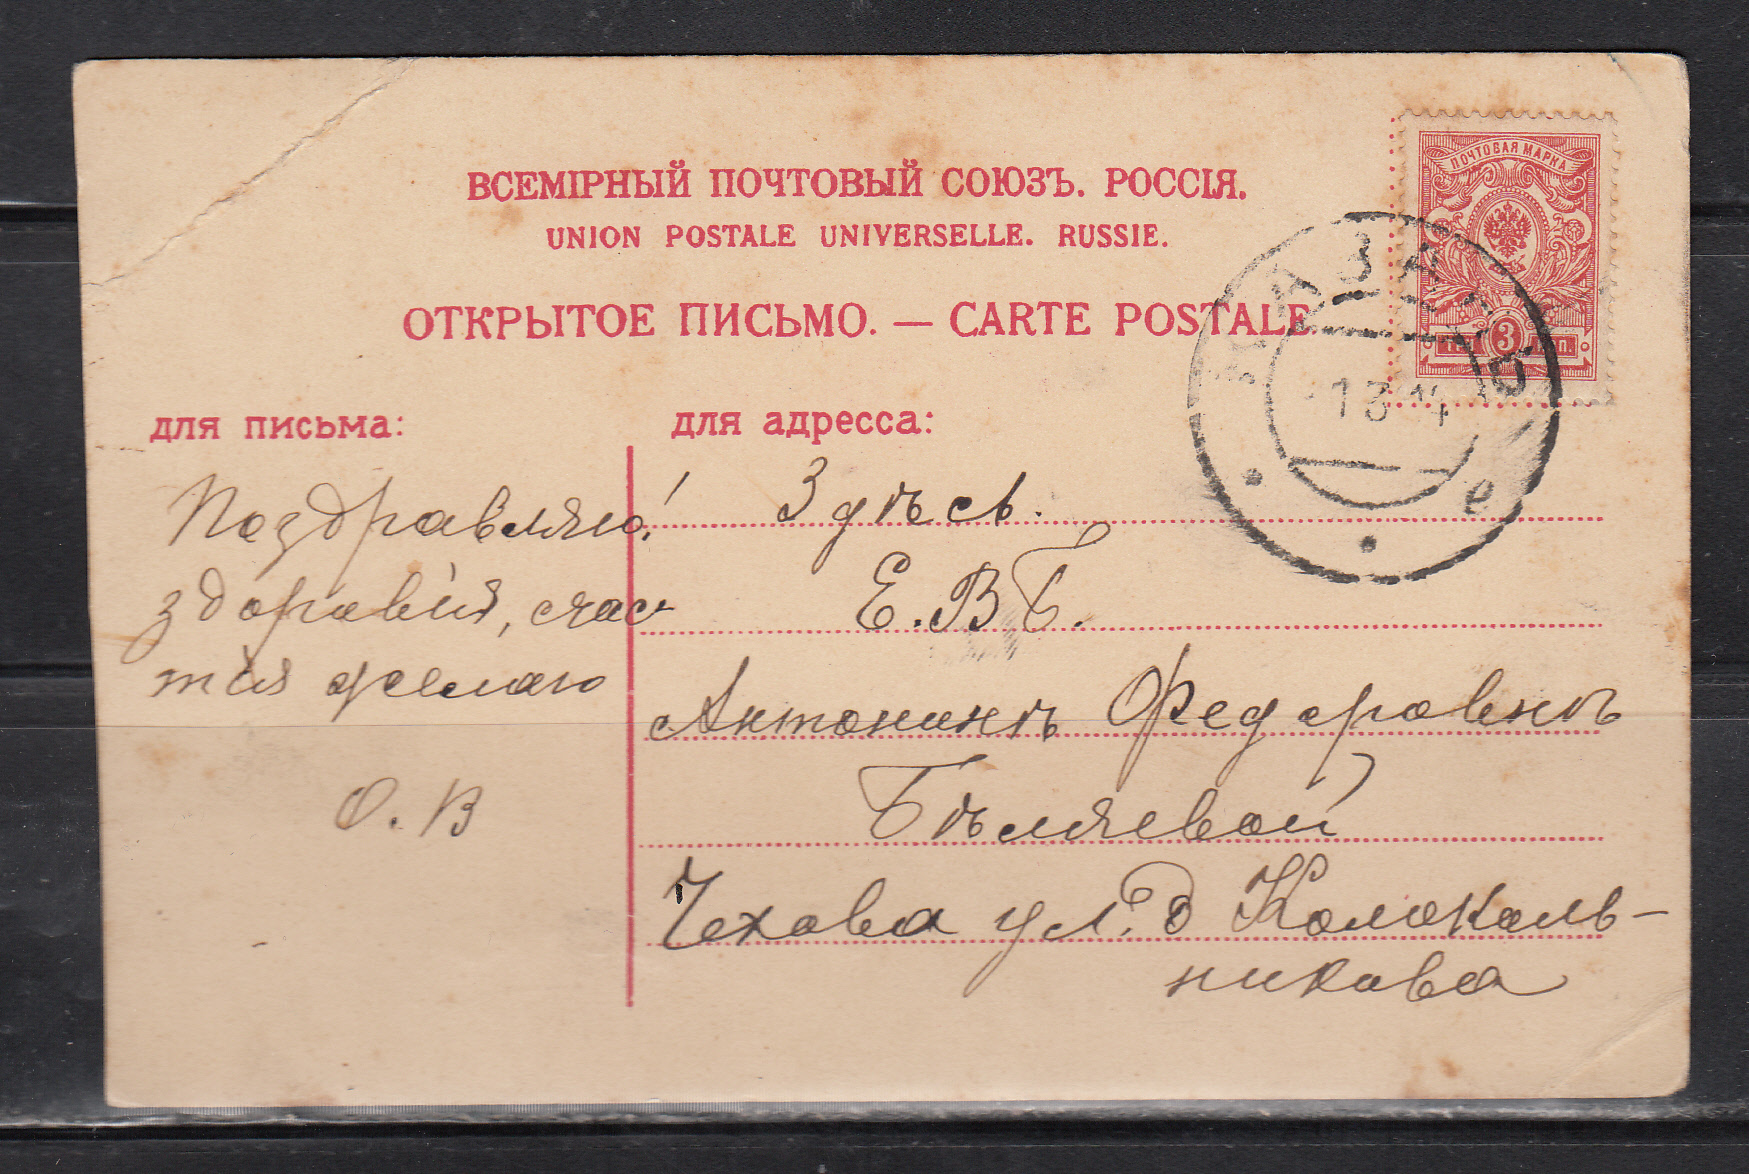 ВСЕМІРНЫЙ ПОЧТОВЫЙ СОЮЗЪ. РОССІЯ.
UNION POSTALE UNIVERSELLE. RUSSIE.
ОТКРЫТОЕ ПИСЬМО. — CARTE POSTALE.
ПОЧТОВАЯ МАРКА
ТРИ 3 КОП.
КАЗАНЬ
13 14
е
для письма:
Поздравляю!
здоровія, счас
тія желаю
О. В
для адресса:
Здѣсь.
Е. В Б.
Антонинѣ Федоровнѣ
Бѣляевой
Чехова ул. д Колокаль-
никова